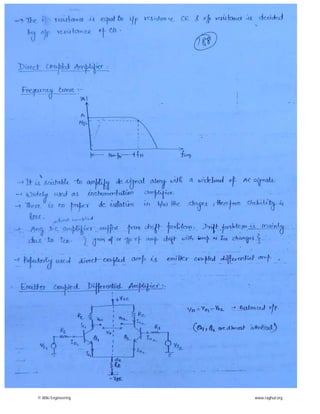 → The i/p resistance is equal to i/p resistance CE & o/p resistance is decided
by o/p resistance of CB.
188
Direct Coupled Amplifier :-
Frequency Curve :-
|A|
A
freq
→ It is suitable to amplify dc signal along with a wideband of AC signals.
→ Widely used as instrumentation amplifier.
→ There is no proper dc isolation in b/w the stages, therefore stability is
less.
direct coupled
→ Any DC amplifier suffer from drift problem. Drift problem is mainly
due to Ico. { gain of or o/p of amp drift with temp as Ico changes }.
→ Popularly used direct-coupled amp. is emitter coupled differential amp.
Emitter Coupled Differential Amplifier :-
+Vcc
Rc Rc
Vo = Vo1 - Vo2 → Balanced o/p
(Q1, Q2 are almost identical)
Rs Rs
Q1 Q2
Vs1 Vs2
RE
-VEE
© Wiki Engineering
www.raghul.org